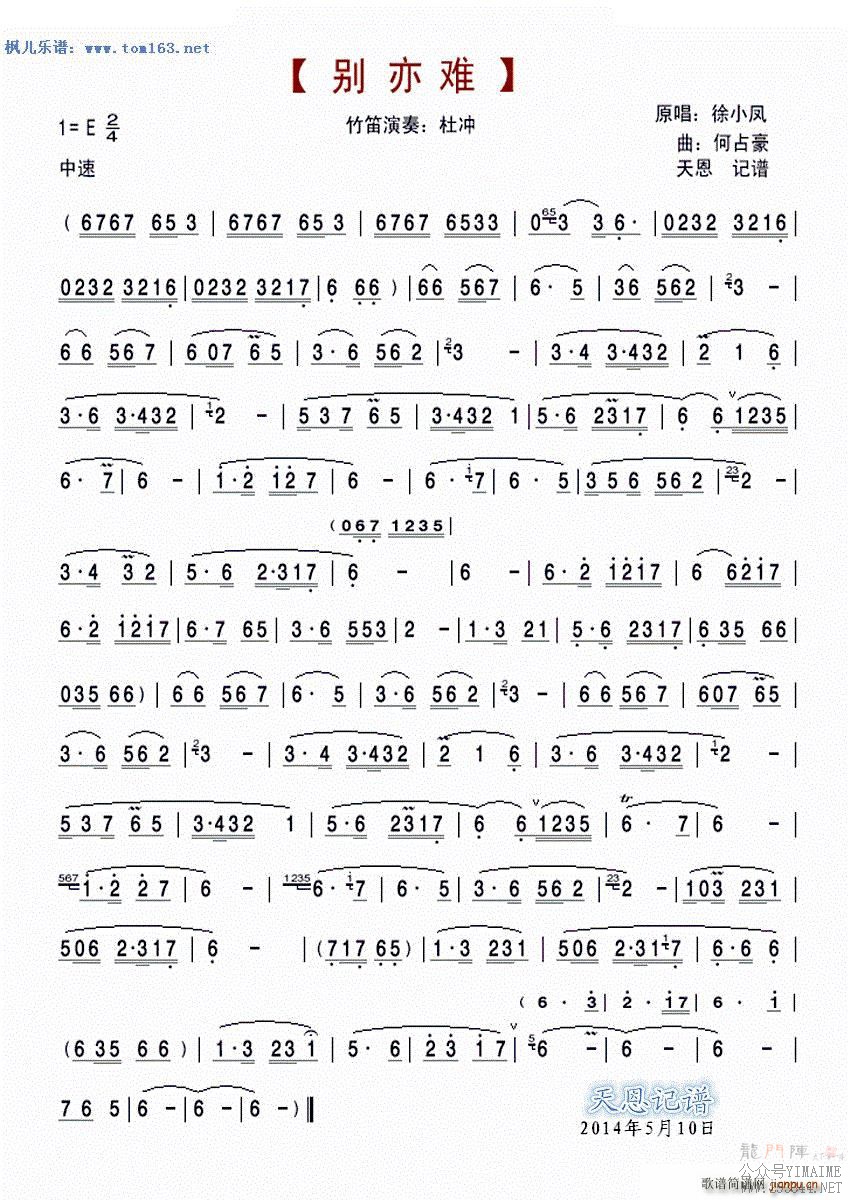 枫儿乐谱：www.tom163.net
【 别 亦 难 】
1= E 2/4
竹笛演奏：杜冲
原唱：徐小凤
曲：何占豪
中速
天恩 记谱
( 6767 653 | 6767 653 | 6767 6533 | 0 65 3 3 6· | 0232 3216 |
0232 3216 | 0232 3217 | 6 66 ) | 66 567 | 6· 5 | 36 562 | 2 3 - |
66 567 | 607 65 | 3·6 562 | 2 3 - | 3·4 3·432 | 2 1 6 |
3·6 3·432 | 1 2 - | 537 65 | 3·432 1 | 5·6 2317 | 6 6 v 1235 |
6· 7 | 6 - | 1·2 127 | 6 - | 6· i 7 | 6· 5 | 356 562 | 23 2 - |
( 067 1235 |
3·4 32 | 5·6 2·317 | 6 - | 6 - | 6·2 1217 | 6 6217 |
6·2 1217 | 6·7 65 | 3·6 553 | 2 - | 1·3 21 | 5·6 2317 | 635 66 |
035 66 ) | 66 567 | 6· 5 | 3·6 562 | 2 3 - | 66 567 | 607 65 |
3·6 562 | 2 3 - | 3·4 3·432 | 2 1 6 | 3·6 3·432 | 1 2 - |
537 65 | 3·432 1 | 5·6 2317 | 6 6 v 1235 | tr 6· 7 | 6 - |
567 1·2 27 | 6 - | 1235 6· i 7 | 6· 5 | 3·6 562 | 23 2 - | 103 231 |
506 2·317 | 6 - | ( 717 65 ) | 1·3 231 | 506 2·31 1 7 | 6·6 6 |
( 6· 3 | 2· 17 | 6· i |
( 635 66 ) | 1·3 23 i | 5·6 | 23 17 v | 5 6 - | 6 - | 6 - |
76 5 | 6 - | 6 - | 6 - ) ‖
天恩记谱
2014年5月10日
龍門陣
公众号YIMAIME
歌谱简谱网 jianpu.cn